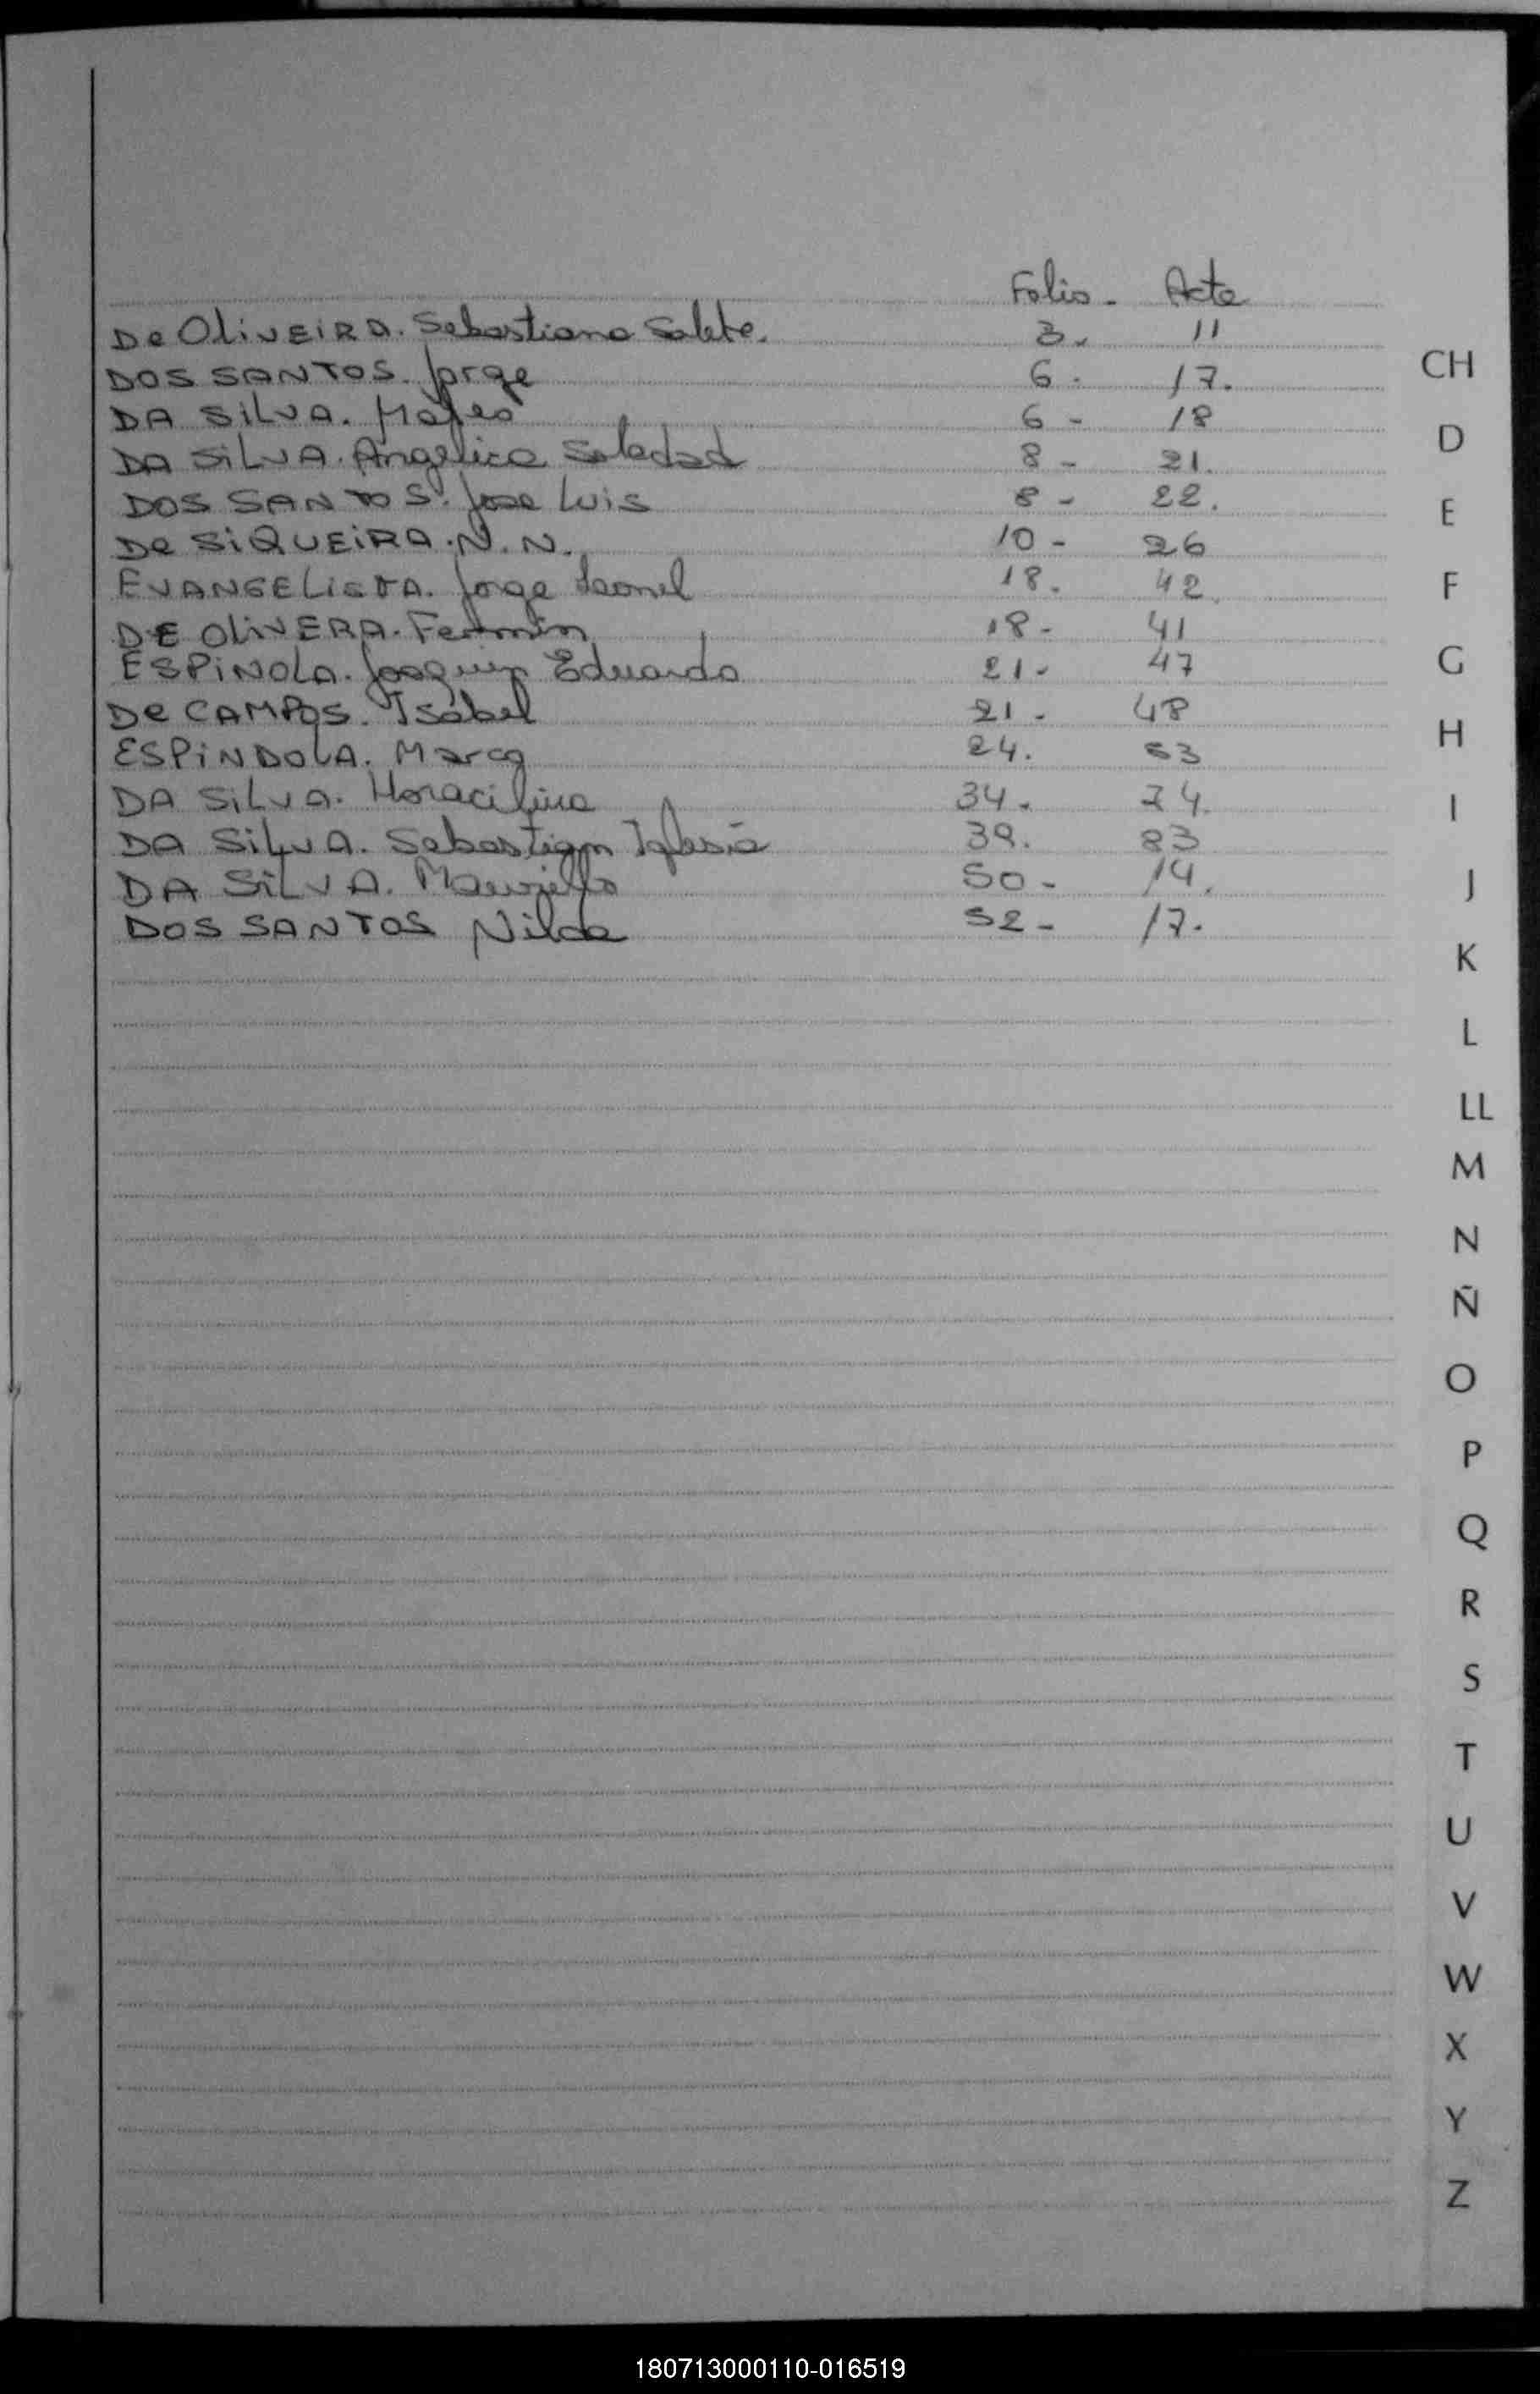 Folio - Acta
De OLiVEiRA. Sebastiana Salete. 3. 11
DOS SANTOS. Jorge 6. 17.
DA SiLVA. 6 - 18
DA SiLVA. Angelica Soledad 8 - 21.
DOS SANTOS. Jose Luis 8 - 22.
De SiQUEiRA. N. N. 10 - 26
EVANGELISTA. Jorge Leonel 18. 42.
DE OLiVERA. Fermin 18 - 41
ESPiNOLA. Joaquin Eduardo 21 - 47
De CAMPOS. Isabel 21 - 48
ESPiNDOLA. 24. 53
DA SiLVA. 34. 74.
DA SiLVA. Sebastian 39. 83
DA SiLVA. 50 - 14.
DOS SANTOS Nilda 52 - 17.
CH
D
E
F
G
H
I
J
K
L
LL
M
N
Ñ
O
P
Q
R
S
T
U
V
W
X
Y
Z
180713000110-016519